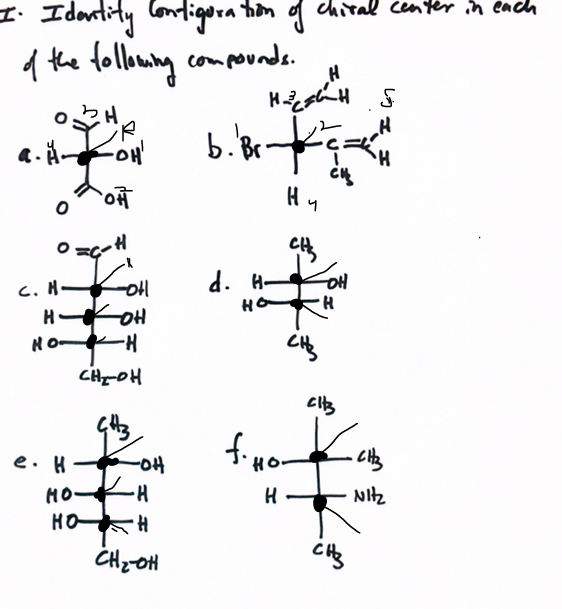 I. Identify Configuration of chiral center in each
of the following compounds.
O 3 H
R
a. H 4 OH 1
O OH 2
H
H 3 C C H
S
b. 1 Br 2 C C H
H
CH3
H 4
O = C H
c. H OH
H OH
HO H
CH2-OH
CH3
d. H OH
HO H
CH3
CH3
e. H OH
HO H
HO H
CH2-OH
CH3
f. HO CH3
H NH2
CH3